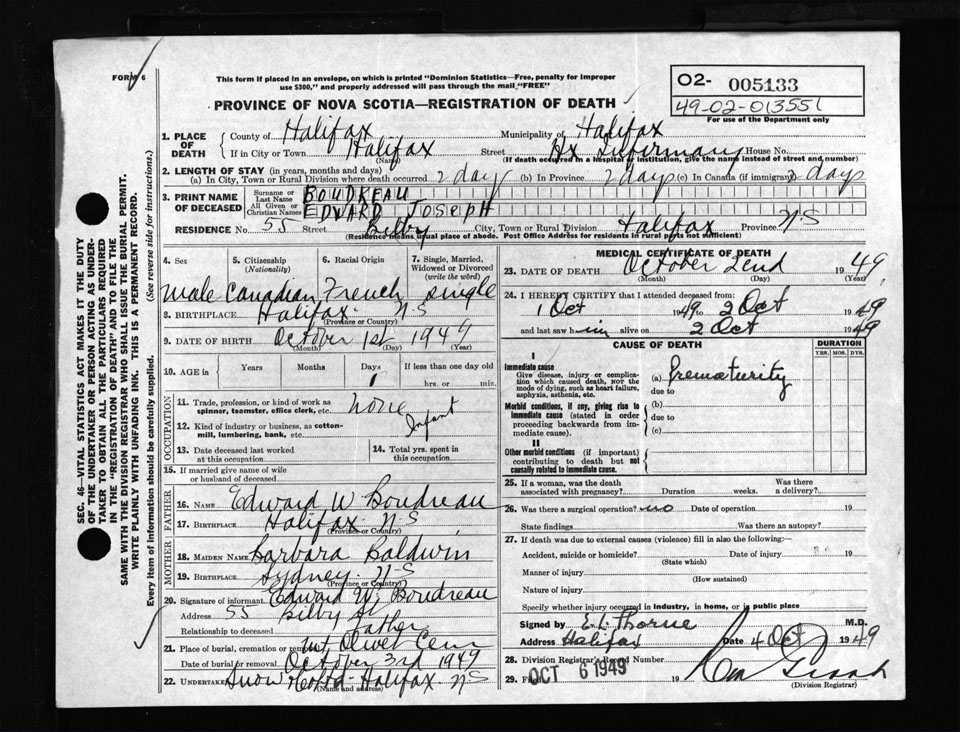 FORM 6
This form if placed in an envelope, on which is printed "Dominion Statistics—Free, penalty for improper
use $300," and properly addressed will pass through the mail "FREE"
PROVINCE OF NOVA SCOTIA—REGISTRATION OF DEATH
O2- 005133
49-02-013551
For use of the Department only
1. PLACE OF DEATH { County of Halifax Municipality of Halifax
If in City or Town Halifax Street Hx Infirmary House No.
(Name) (If death occurred in a hospital or institution, give the name instead of street and number)
2. LENGTH OF STAY (in years, months and days)
(a) In City, Town or Rural Division where death occurred 2 day (b) In Province 2 days (c) In Canada (if immigrant) 2 days
3. PRINT NAME OF DECEASED { Surname or Last Name BOUDREAU
All Given or Christian Names EDWARD JOSEPH
RESIDENCE No. 55 Street Bilby City, Town or Rural Division Halifax Province N.S
(Residence means usual place of abode. Post Office Address for residents in rural parts not sufficient)
4. Sex 5. Citizenship (Nationality) 6. Racial Origin 7. Single, Married, Widowed or Divorced (write the word)
male Canadian French single
8. BIRTHPLACE Halifax N-S
(Province or Country)
9. DATE OF BIRTH October 1st 1949
(Month) (Day) (Year)
10. AGE in { Years Months Days If less than one day
1 hrs. or min.
OCCUPATION
11. Trade, profession or kind of work as
spinner, teamster, office clerk, etc. none
12. Kind of industry or business, as cotton-
mill, lumbering, bank, etc. Infant
13. Date deceased last worked at this occupation
14. Total yrs. spent in this occupation
15. If married give name of wife
or husband of deceased
FATHER
16. Name Edward W Boudreau
17. Birthplace Halifax N-S
(Province or Country)
MOTHER
18. Maiden Name Barbara Baldwin
19. Birthplace Sydney. N-S
(Province or Country)
20. Signature of informant Edward W. Boudreau
Address 55 Bilby St
Relationship to deceased father
21. Place of burial, cremation or removal Mt Olivet Cem
Date of burial or removal October 3rd 1949
22. Undertaker Snow Halifax N-S
(Name and address)
MEDICAL CERTIFICATE OF DEATH
23. DATE OF DEATH October 2end 1949
(Month) (Day) (Year)
24. I HEREBY CERTIFY that I attended deceased from:
1 Oct 1949 to 2 Oct 1949
and last saw him alive on 2 Oct 1949
CAUSE OF DEATH DURATION
YRS. MOS. DYS.
I
Immediate cause
Give disease, injury or complica-
tion which caused death, NOT the
mode of dying, such as heart failure,
asphyxia, asthenia, etc.
(a) Prematurity
due to
Morbid conditions, if any, giving rise to
immediate cause (stated in order
proceeding backwards from im-
mediate cause).
(b)
due to
(c)
II
Other morbid conditions (if important)
contributing to death but not
causally related to immediate cause.
25. If a woman, was the death Was there
associated with pregnancy? Duration weeks. a delivery?
26. Was there a surgical operation? no Date of operation 19
State findings Was there an autopsy?
27. If death was due to external causes (violence) fill in also the following:—
Accident, suicide or homicide? Date of injury 19
(State which)
Manner of injury
(How sustained)
Nature of injury
Specify whether injury occurred in industry, in home, or in public place
Signed by E. L. Thorne M.D.
Address Halifax Date 4 Oct 1949
28. Division Registrar's Record Number
29. Filed OCT 6 1949 19
(Division Registrar)
SEC. 46—VITAL STATISTICS ACT MAKES IT THE DUTY
OF THE UNDERTAKER OR PERSON ACTING AS UNDER-
TAKER TO OBTAIN ALL THE PARTICULARS REQUIRED
IN THE "REGISTRATION OF DEATH" AND TO FILE THE
SAME WITH THE DIVISION REGISTRAR WHO SHALL ISSUE THE BURIAL PERMIT.
WRITE PLAINLY WITH UNFADING INK. THIS IS A PERMANENT RECORD.
Every item of information should be carefully supplied. (See reverse side for instructions.)